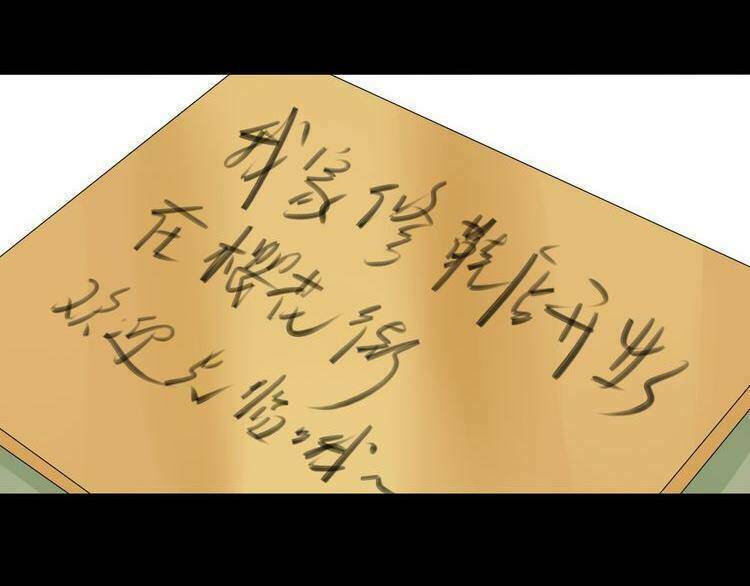 我家修鞋店开业
在樱花街
欢迎光临哦~